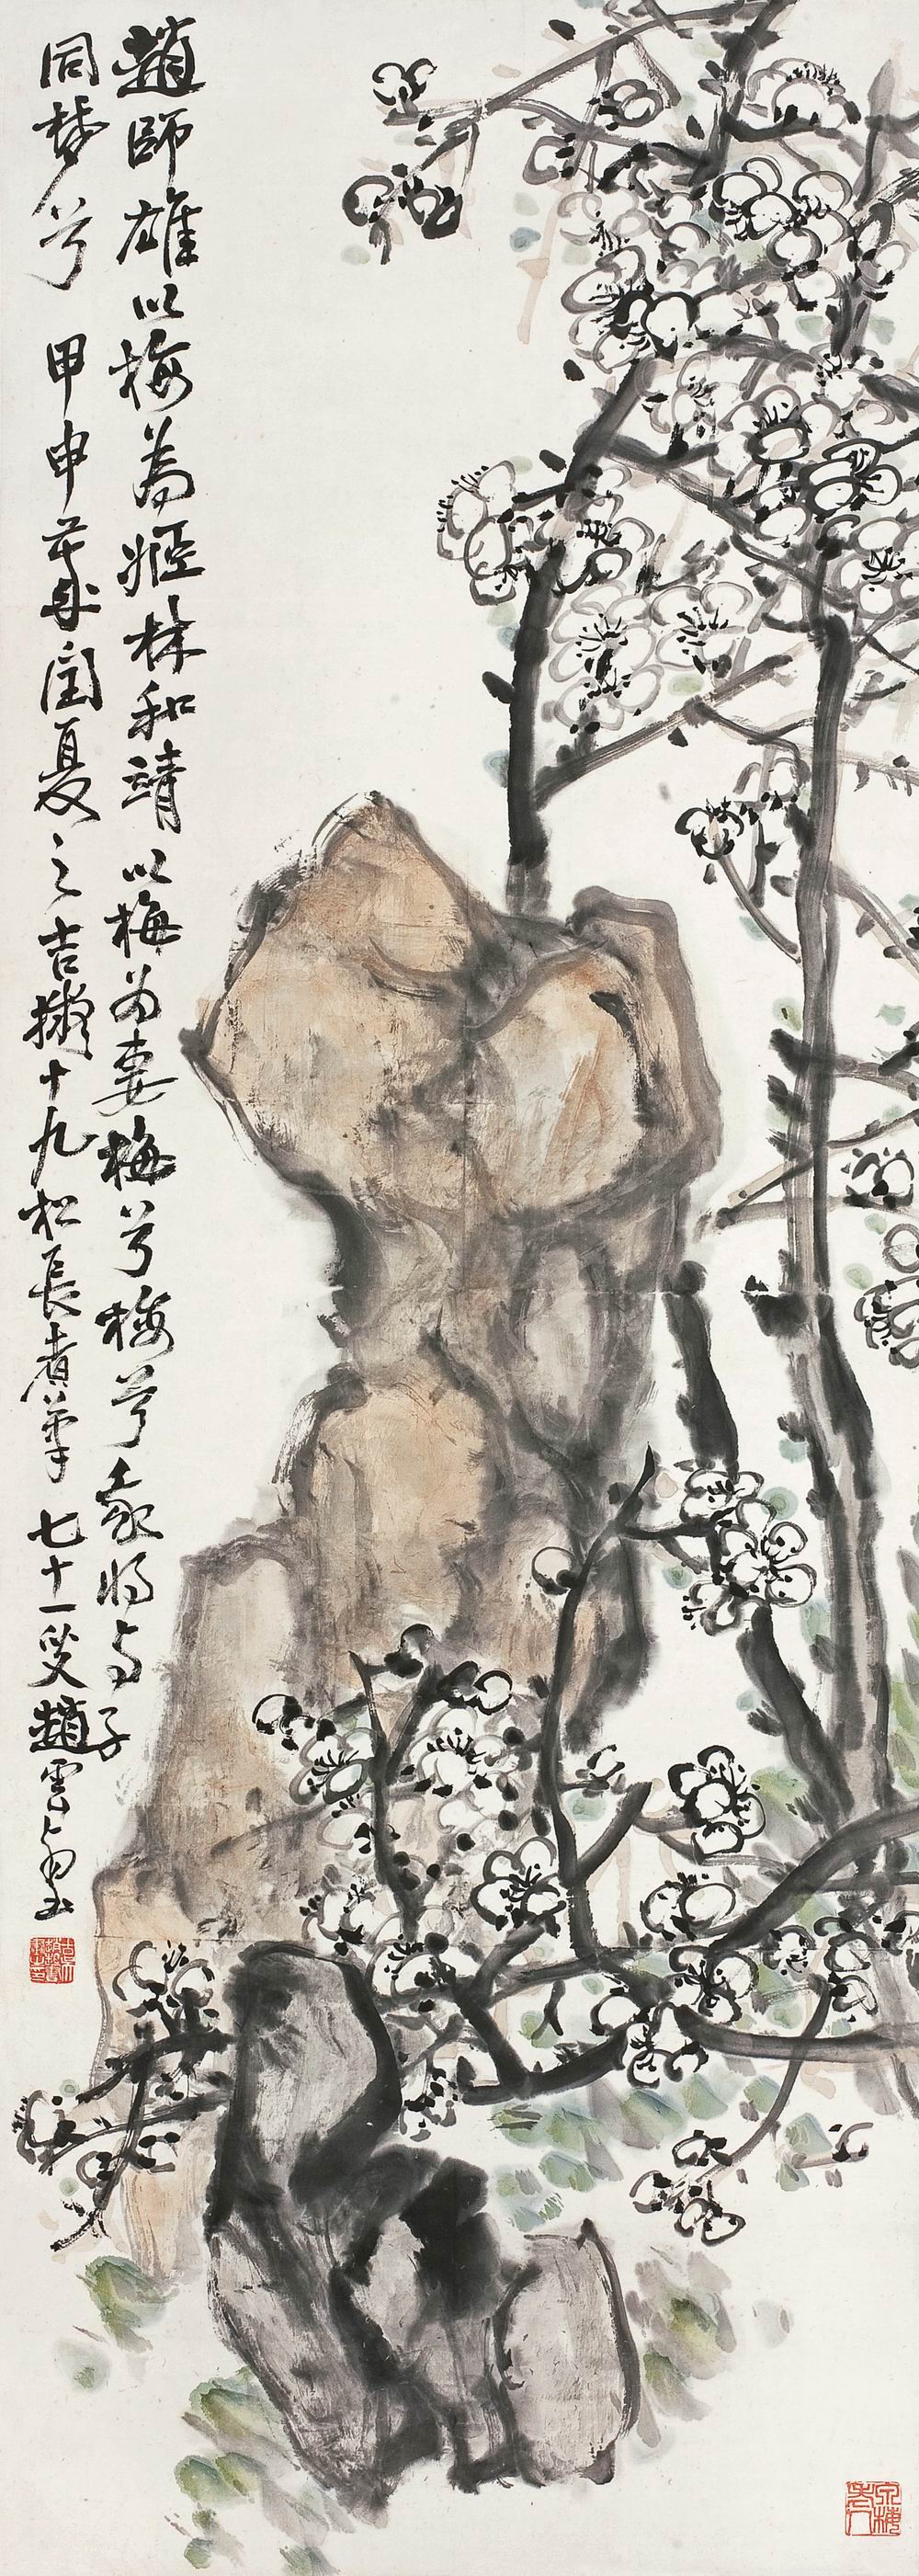 趙師雄以梅為姬林和靖以梅為妻梅兮梅兮我將與子
同夢兮 甲申歲閏夏之吉擬十九松長者筆 七十一叟趙雲壑